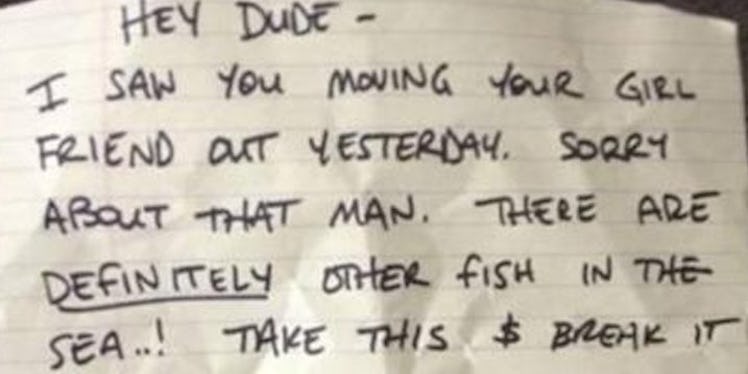 HEY DUDE -
I SAW YOU MOVING YOUR GIRL
FRIEND OUT YESTERDAY. SORRY
ABOUT THAT MAN. THERE ARE
DEFINITELY OTHER FISH IN THE
SEA..! TAKE THIS $ BREAK IT